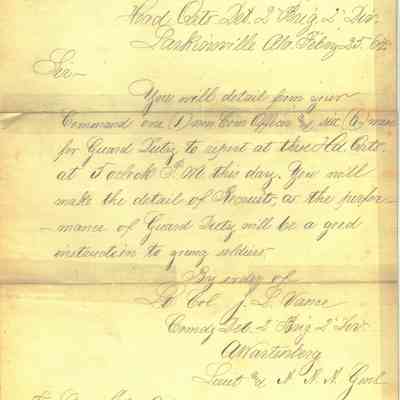 Head Qrts Det. 2' Brig 2' Div.
Larkinsville Ala. Feby 25. 64.
Sir
You will detail from your
Command one (1) non Com Officer & six (6) men
for Guard Duty to report at these Hd Qrts
at 5 oclock P.M this day. You will
make the detail of Recruits, as the perfor-
-mance of Guard Duty will be a good
instruction to young soldiers
By order of
Lt Col J. L. Vance
Comdg Det. 2' Brig 2' Div
A Wartenberg
Lieut & A. A. A. Genl